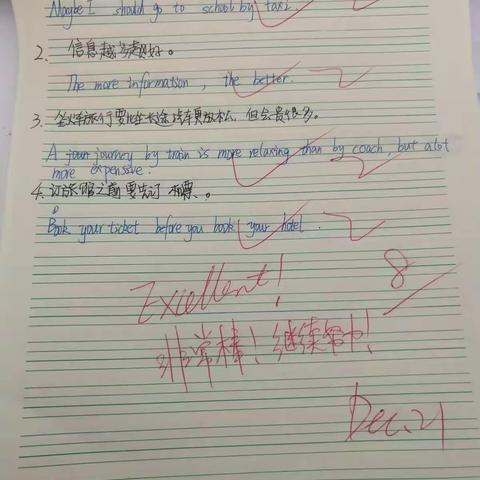 Maybe I should go to school by taxi
2. 信息越多越好。
The more information , the better.
3. 坐火车旅行要比坐长途汽车更放松，但会贵很多。
A journey by train is more relaxing than by coach, but a lot
more expensive.
4. 订旅馆之前要先订票。
Book your ticket before you book your hotel.
Excellent! 8
非常棒！继续努力！
Dec. 21